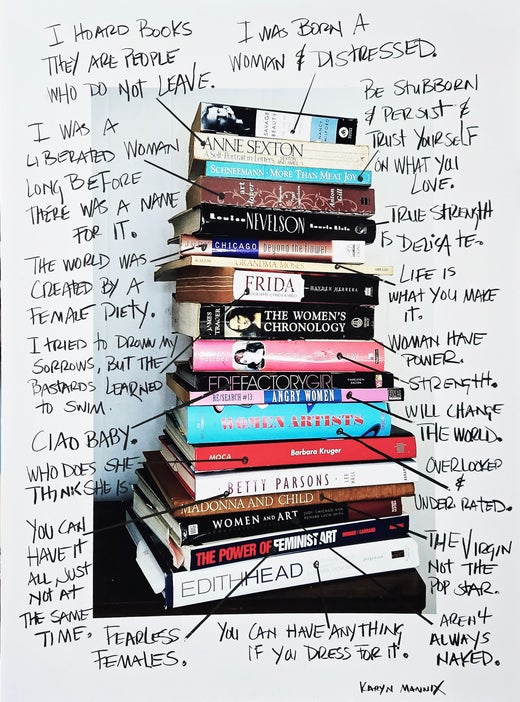 I HOARD BOOKS
THEY ARE PEOPLE
WHO DO NOT LEAVE.
I WAS BORN A
WOMAN & DISTRESSED.
BE STUBBORN
& PERSIST &
TRUST YOURSELF
ON WHAT YOU
LOVE.
I WAS A
LIBERATED WOMAN
LONG BEFORE
THERE WAS A NAME
FOR IT.
TRUE STRENGTH
IS DELICATE.
THE WORLD WAS
CREATED BY A
FEMALE DIETY.
LIFE IS
WHAT YOU MAKE
IT.
I TRIED TO DROWN MY
SORROWS, BUT THE
BASTARDS LEARNED
TO SWIM.
WOMEN HAVE
POWER.
STRENGTH.
CIAO BABY.
WILL CHANGE
THE WORLD.
WHO DOES SHE
THINK SHE IS
OVERLOOKED
&
UNDER RATED.
YOU CAN
HAVE IT
ALL JUST
NOT AT
THE SAME
TIME.
THE VIRGIN
NOT THE
POP STAR.
FEARLESS
FEMALES.
YOU CAN HAVE ANYTHING
IF YOU DRESS FOR IT.
AREN'T
ALWAYS
NAKED.
KARYN MANNIX
SAVAGE BEAUTY
NANCY MILFORD
ANNE SEXTON
A Self-Portrait in Letters
SCHNEEMANN · MORE THAN MEAT JOY
Louise NEVELSON
CHICAGO beyond the flower
GRANDMA MOSES
FRIDA
HAYDEN HERRERA
JAMES TRAGER
THE WOMEN'S
CHRONOLOGY
EDIE FACTORY GIRL
RE/SEARCH #13: ANGRY WOMEN
WOMEN ARTISTS
MOCA Barbara Kruger
BETTY PARSONS
LEE HALL
MADONNA AND CHILD
WOMEN AND ART
JUDY CHICAGO AND
EDWARD LUCIE-SMITH
THE POWER OF FEMINIST ART
BROUDE / GARRARD
EDITH HEAD